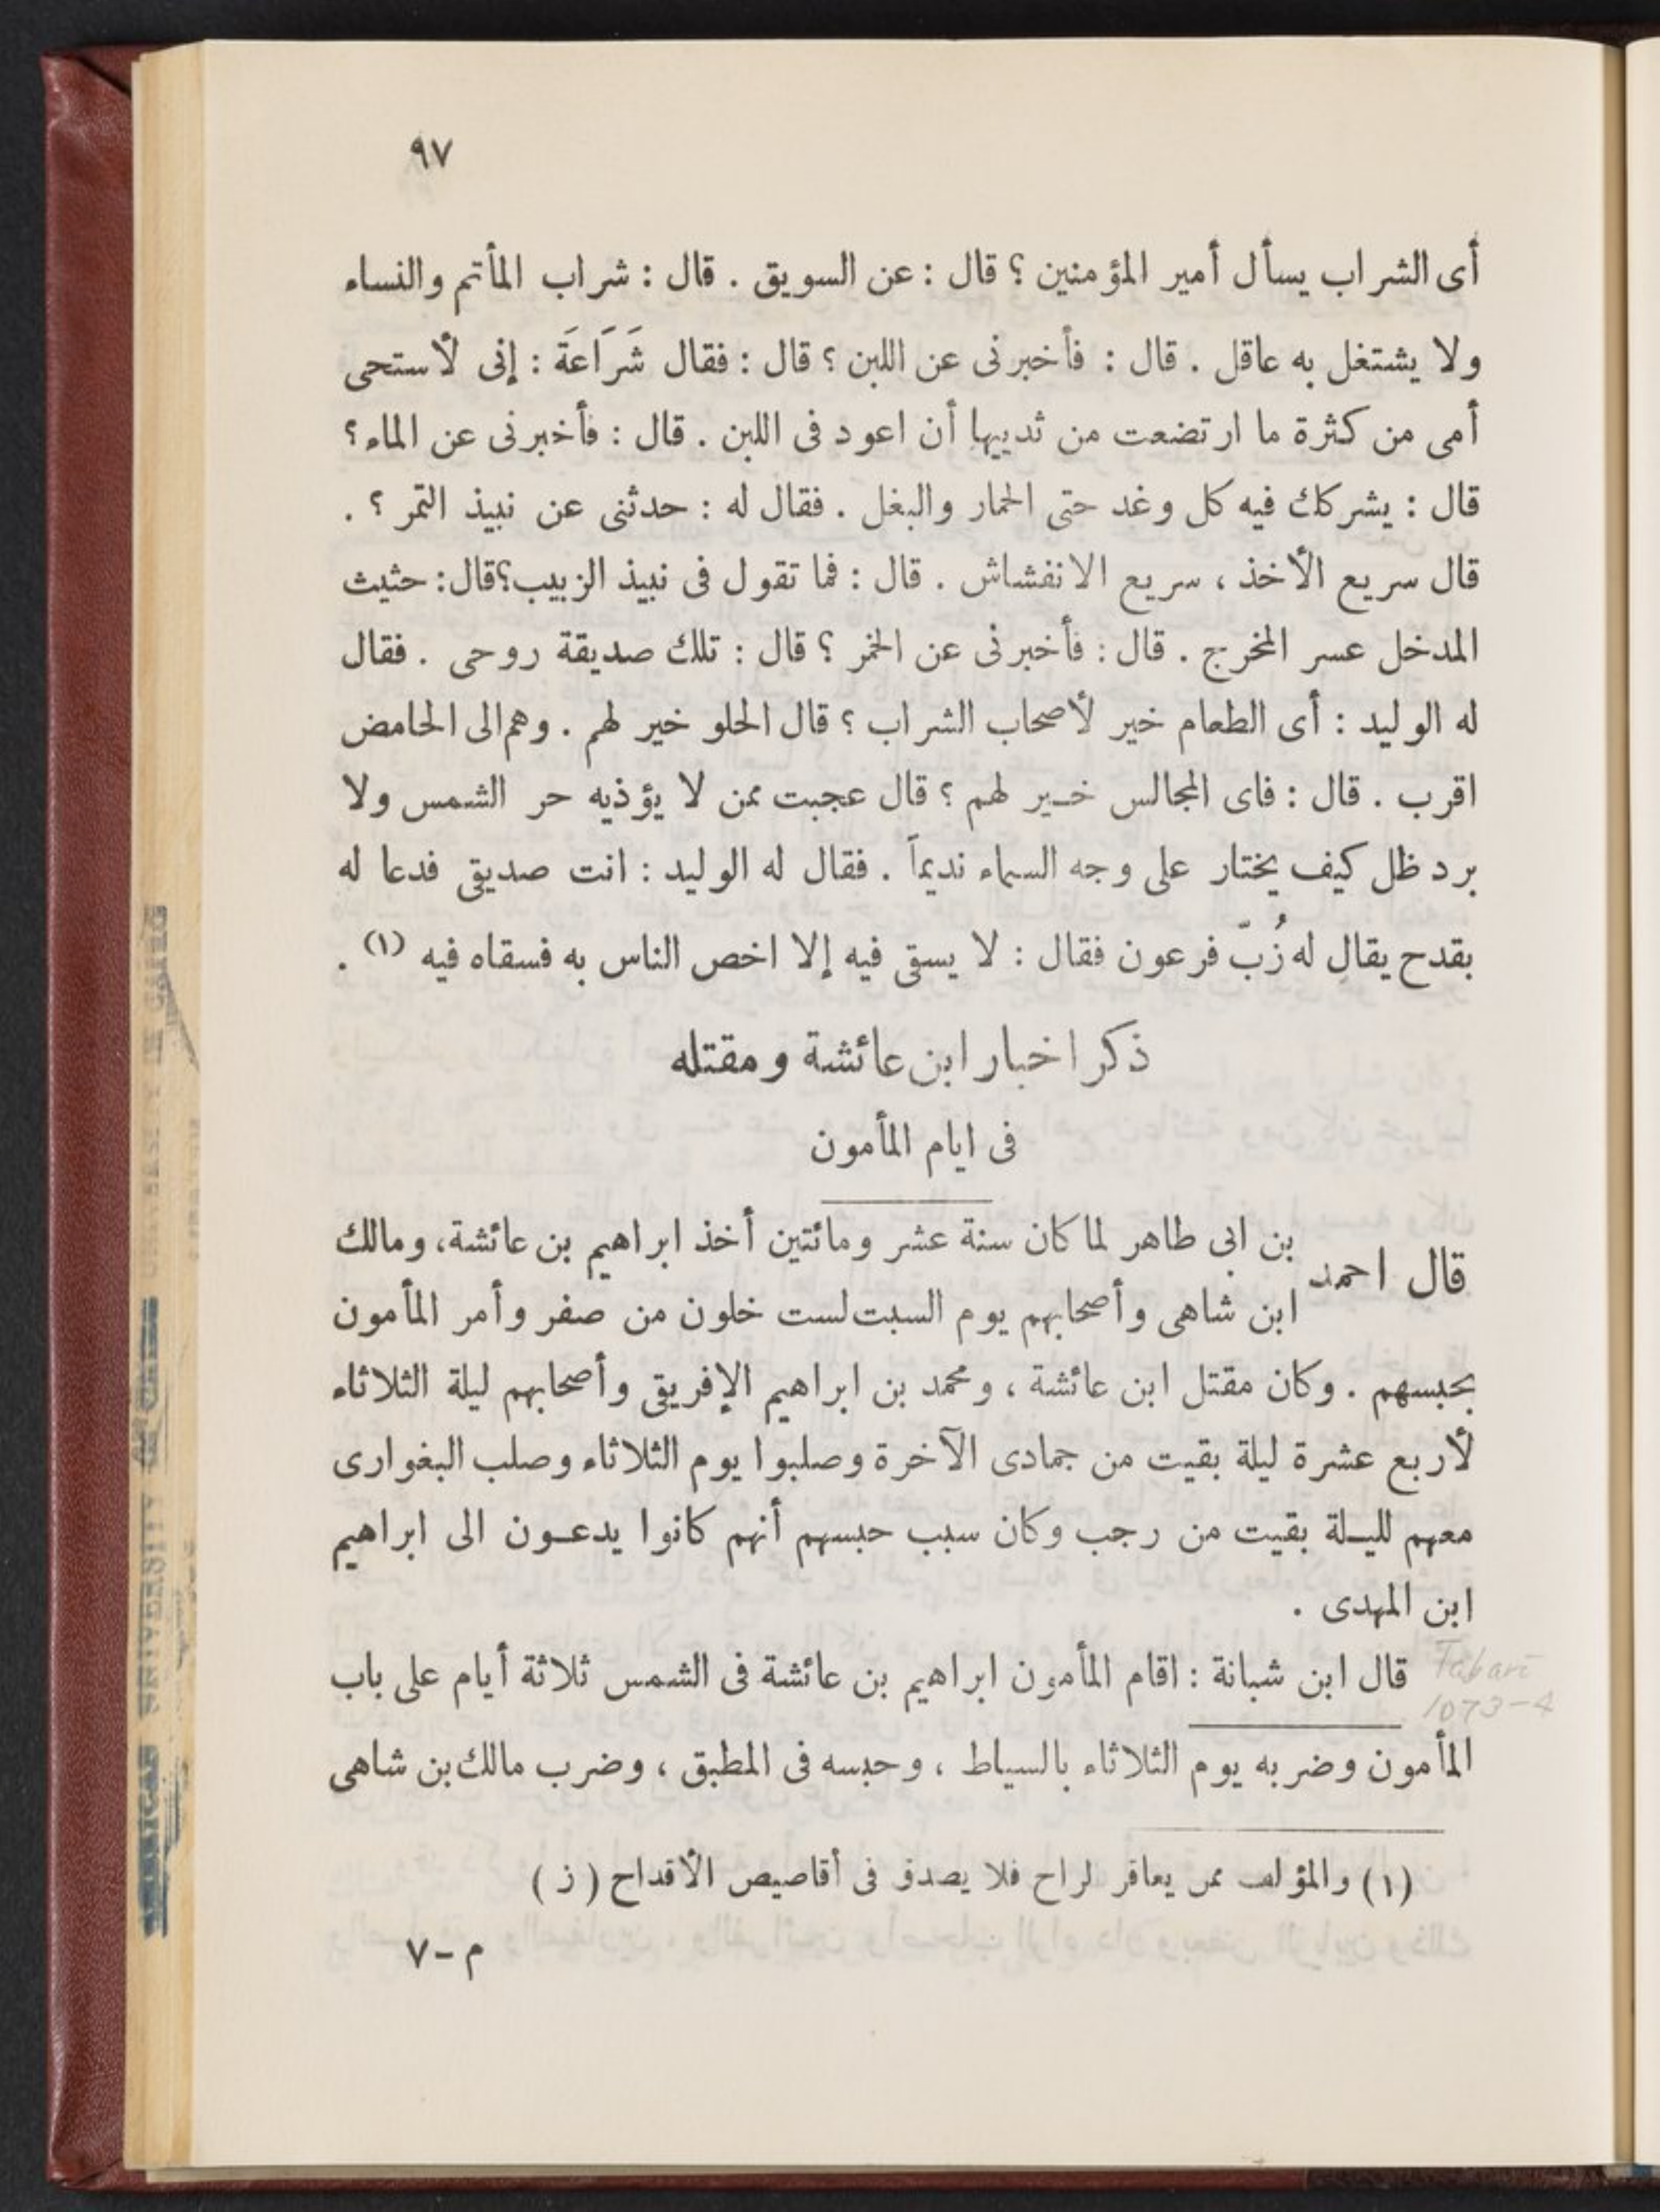 ٩٧
أى الشراب يسأل أمير المؤمنين ؟ قال : عن السويق . قال : شراب المأتم والنساء
ولا يشتغل به عاقل . قال : فأخبرنى عن اللبن ؟ قال : فقال شَرَاعَة : إنى لأستحى
أمى من كثرة ما ارتضعت من ثدييها أن اعود فى اللبن . قال : فأخبرنى عن الماء ؟
قال : يشركك فيه كل وغد حتى الحمار والبغل . فقال له : حدثنى عن نبيذ التمر ؟ .
قال سريع الأخذ ، سريع الانفشاش . قال : فما تقول فى نبيذ الزبيب؟قال: حثيث
المدخل عسر المخرج . قال : فأخبرنى عن الخمر ؟ قال : تلك صديقة روحى . فقال
له الوليد : أى الطعام خير لأصحاب الشراب ؟ قال الحلو خير لهم . وهم الى الحامض
اقرب . قال : فاى المجالس خير لهم ؟ قال عجبت ممن لا يؤذيه حر الشمس ولا
برد ظل كيف يختار على وجه السماء نديماً . فقال له الوليد : انت صديقى فدعا له
بقدح يقال له زُبّ فرعون فقال : لا يسقى فيه إلا اخص الناس به فسقاه فيه (١) .
ذكر اخبار ابن عائشة ومقتله
فى ايام المأمون
قال احمد بن ابى طاهر لما كان سنة عشر ومائتين أخذ ابراهيم بن عائشة، ومالك
ابن شاهى وأصحابهم يوم السبت لست خلون من صفر وأمر المأمون
بحبسهم . وكان مقتل ابن عائشة ، ومحمد بن ابراهيم الإفريقى وأصحابهم ليلة الثلاثاء
لأربع عشرة ليلة بقيت من جمادى الآخرة وصلبوا يوم الثلاثاء وصلب البغوارى
معهم لليلة بقيت من رجب وكان سبب حبسهم أنهم كانوا يدعون الى ابراهيم
ابن المهدى .
قال ابن شبانة : اقام المأمون ابراهيم بن عائشة فى الشمس ثلاثة أيام على باب
Tabari
1073-4
المأمون وضربه يوم الثلاثاء بالسياط ، وحبسه فى المطبق ، وضرب مالك بن شاهى
(١) والمؤلف ممن يعاقر لراح فلا يصدق فى أقاصيص الأقداح ( ز )
م – ٧